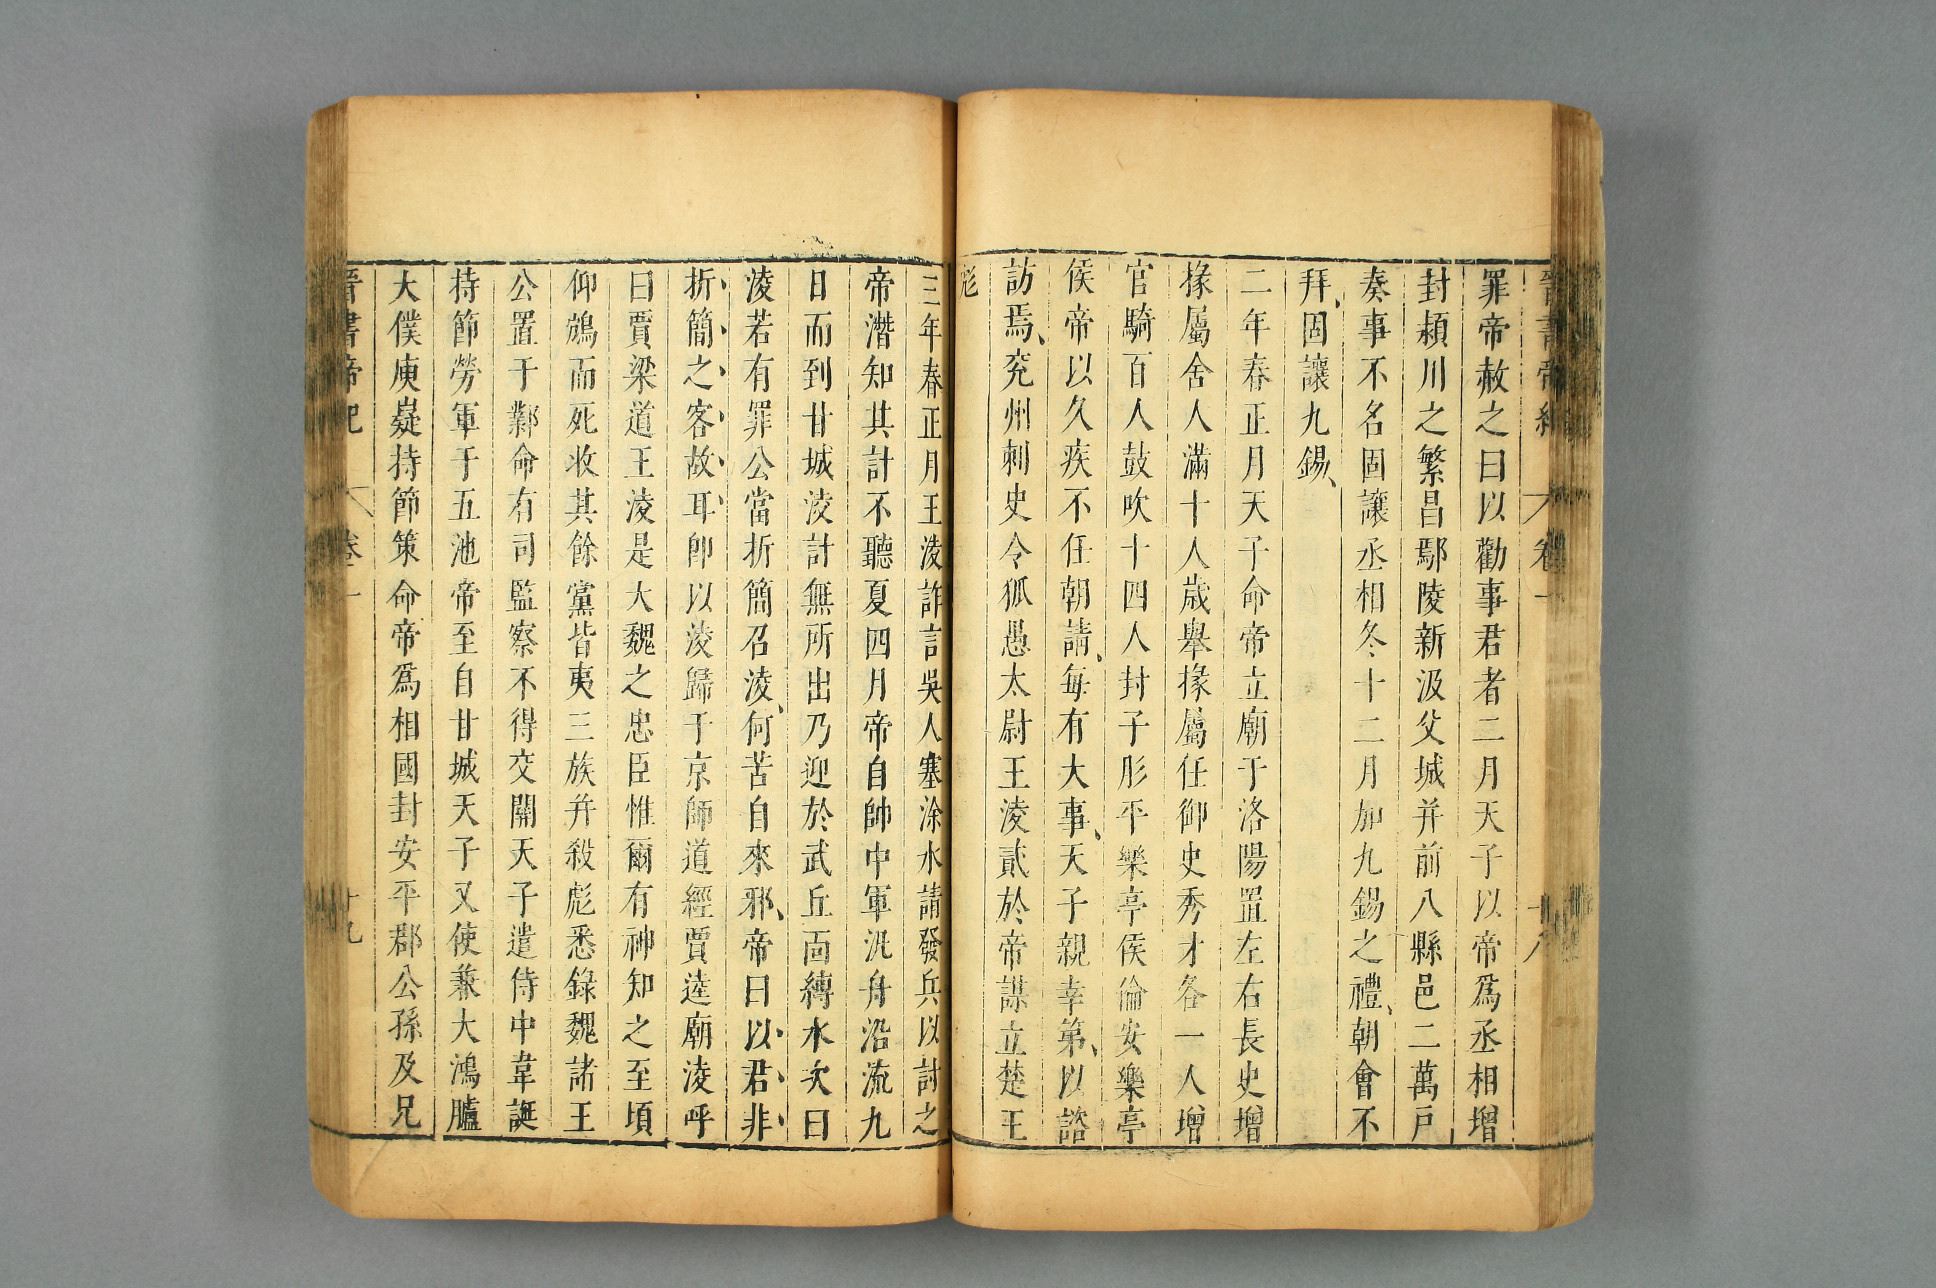 晉書帝紀 卷一 十八
罪帝赦之曰以勸事君者二月天子以帝爲丞相增
封潁川之繁昌鄢陵新汲父城并前八縣邑二萬戸
奏事不名固讓丞相冬十二月加九錫之禮、朝會不
拜、固讓九錫、
二年春正月天子命帝立廟于洛陽置左右長史增
掾屬舍人滿十人歲舉掾屬任御史秀才各一人增
官騎百人鼓吹十四人封子肜平樂亭侯倫安樂亭
侯帝以久疾不任朝請、每有大事、天子親幸第、以諮
訪焉、兖州刺史令狐愚太尉王淩貳於帝謀立楚王
彪
三年春正月王淩詐言吳人塞涂水請發兵以討之
帝潛知其計不聽夏四月帝自帥中軍汎舟沿流九
日而到甘城淩計無所出乃迎於武丘面縛水次曰
淩若有罪公當折簡召淩、何苦自來邪、帝曰以君非
折簡之客故耳、卽以淩歸于京師道經賈逵廟淩呼
曰賈梁道王淩是大魏之忠臣惟爾有神知之至頃
仰鴆而死收其餘黨皆夷三族并殺彪悉錄魏諸王
公置于鄴命有司監察不得交關天子遣侍中韋誕
持節勞軍于五池帝至自甘城天子又使兼大鴻臚
大僕庾嶷持節策命帝爲相國封安平郡公孫及兄
晉書帝紀 卷一 十九